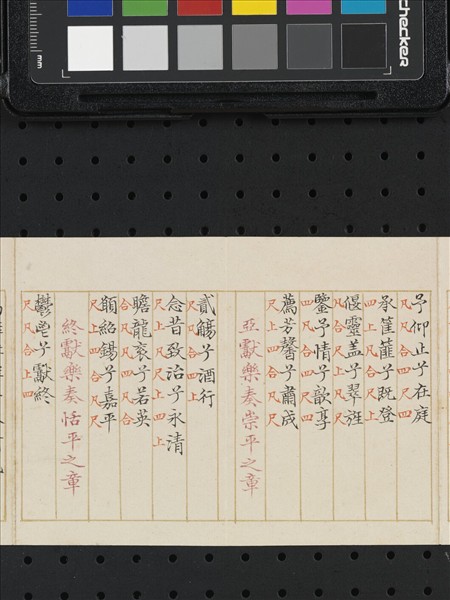 checker
mm
兮仰止兮在庭
凡凡合尺四
承筐篚兮既登
四上合尺上
偃靈盖兮翠旌
凡凡合尺四
鑒兮情兮歆享
薦芳馨兮肅成
亞獻樂奏崇平之章
貳觴兮酒行
尺凡合四上
念昔致治兮永清
尺上四尺四上
瞻龍衮兮若英
合凡凡四合尺
紹錫兮嘉平
尺上四合凡尺
終獻樂奏恬平之章
鬱鬯兮獻終
尺凡合上四